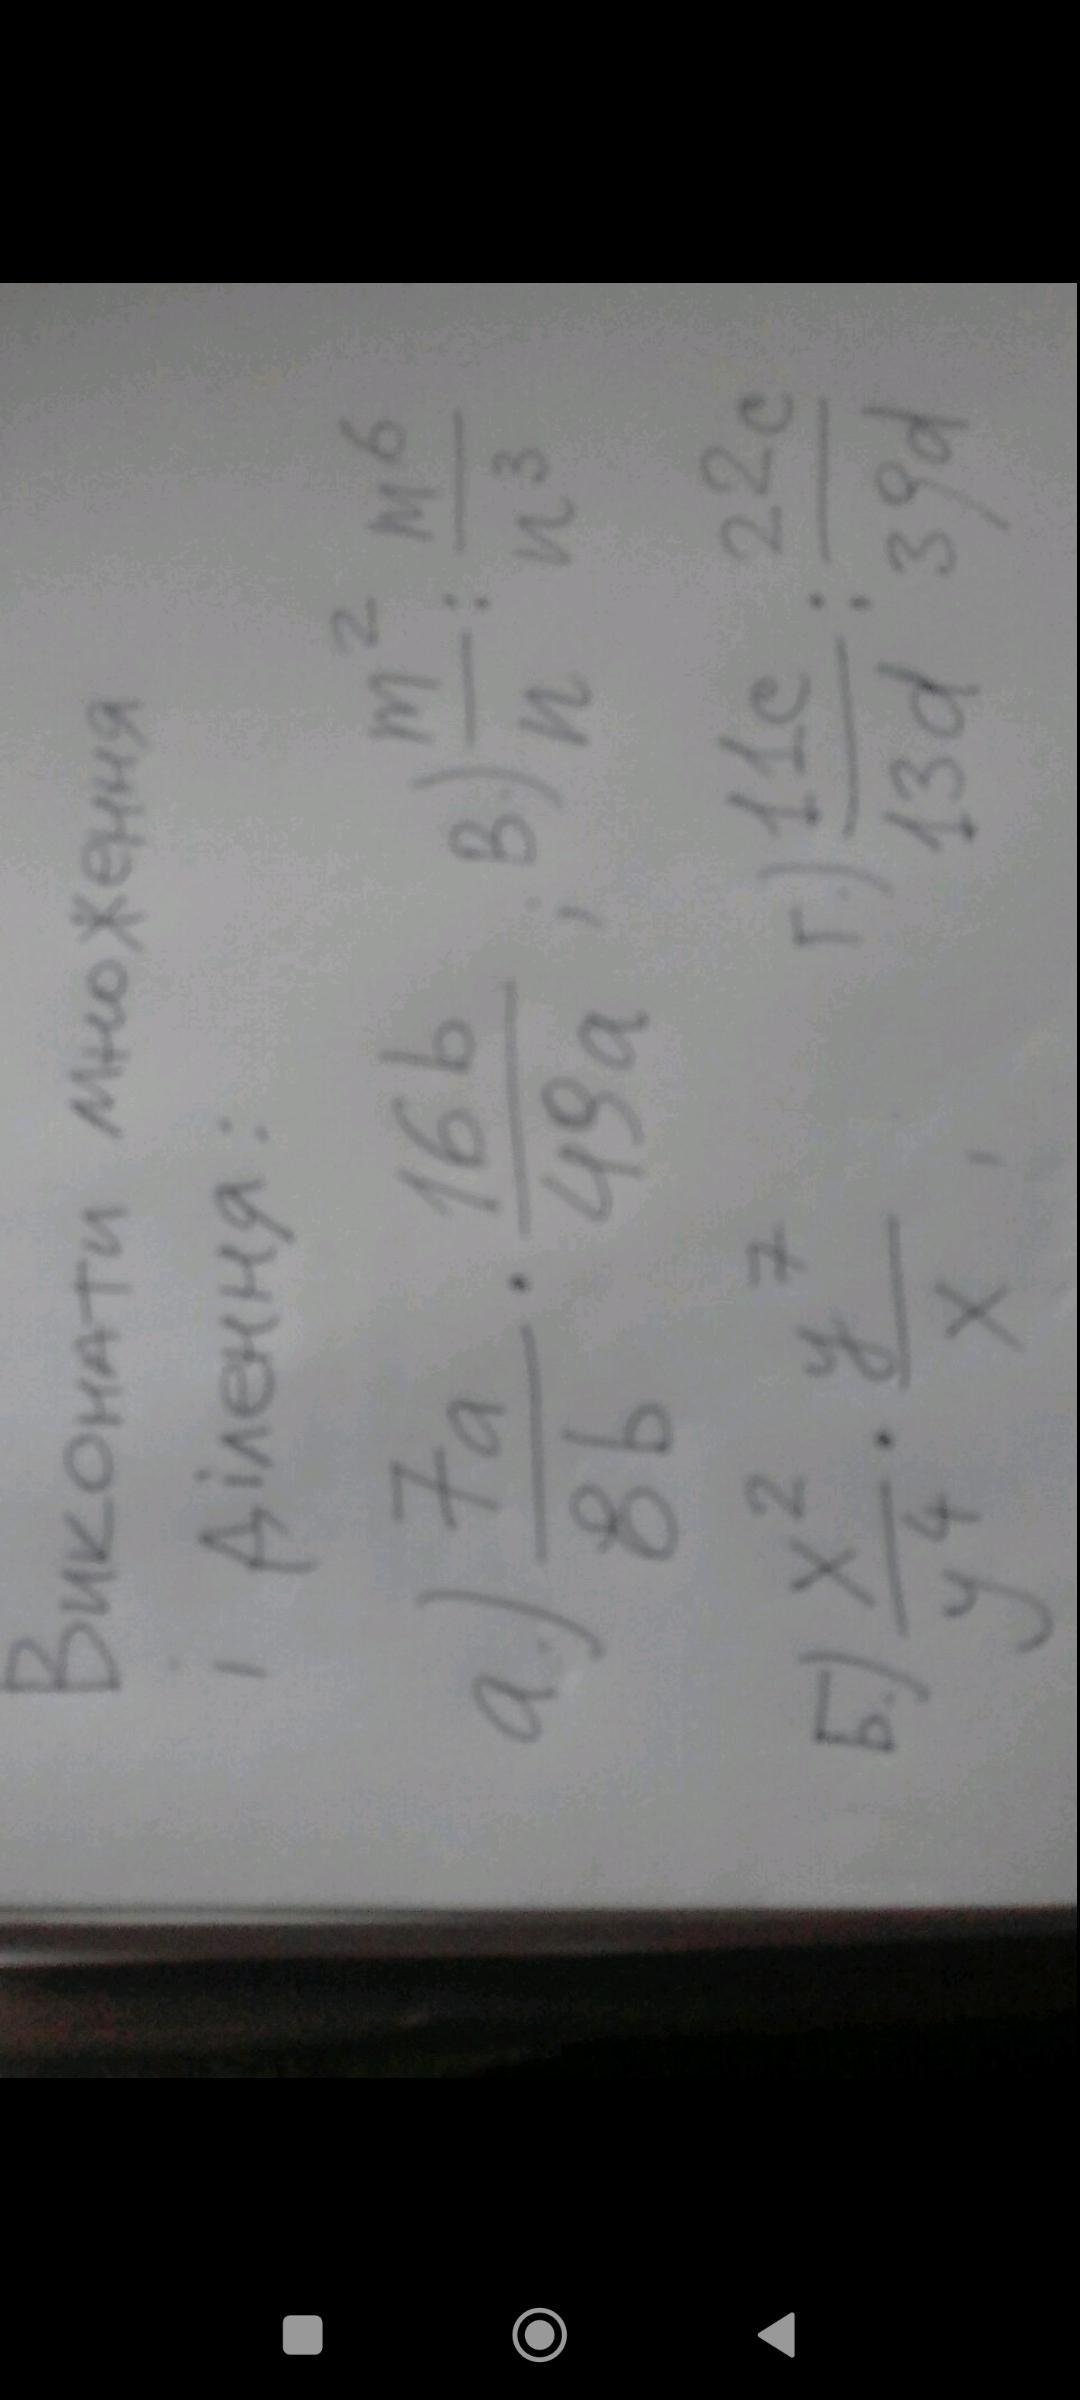 Виконати множення
і ділення:
а.) 7a/8b · 16b/49a ; В.) m²/n : m⁶/n³
Б.) x²/y⁴ · y⁷/x , Г.) 11c/13d : 22c/39d